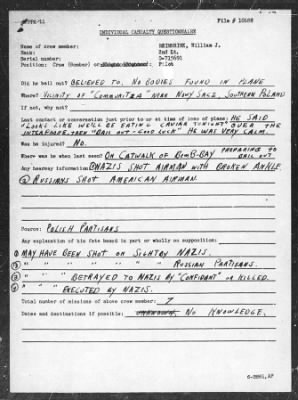 File # 10488
INDIVIDUAL CASUALTY QUESTIONNAIRE
Name of crew member: William J.
Rank: 2nd Lt.
Serial number:
Position: Crew (Bomber) or Pilot
Did he bail out? BELIEVED TO. NO BODIES FOUND IN PLANE
Where? VICINITY OF NEAR NOWY SACZ, SOUTHERN POLAND
If not, why not?
Last contact or conversation just prior to or at time of loss of plane: HE SAID
"LOOKS LIKE WE'LL BE EATING CAVIAR TONIGHT" OVER THE
INTERPHONE, THEN "BAIL OUT - GOOD LUCK" HE WAS VERY CALM.
Was he injured? NO.
Where was he when last seen? ON CATWALK OF BOMB-BAY PREPARING TO BAIL OUT
Any hearsay information ① NAZIS SHOT AIRMAN WITH BROKEN ANKLE.
② RUSSIANS SHOT AMERICAN AIRMAN.
Source: POLISH PARTISANS
Any explanation of his fate based in part or wholly on supposition:
① MAY HAVE BEEN SHOT ON SIGHT BY NAZIS.
② " " " " " " RUSSIAN PARTISANS.
③ " " " BETRAYED TO NAZIS BY "CONFIDANT" OR KILLED.
④ " " " EXECUTED BY NAZIS.
Total number of missions of above crew member: 7
Dates and destinations if possible: NO KNOWLEDGE.
6-3861,AF